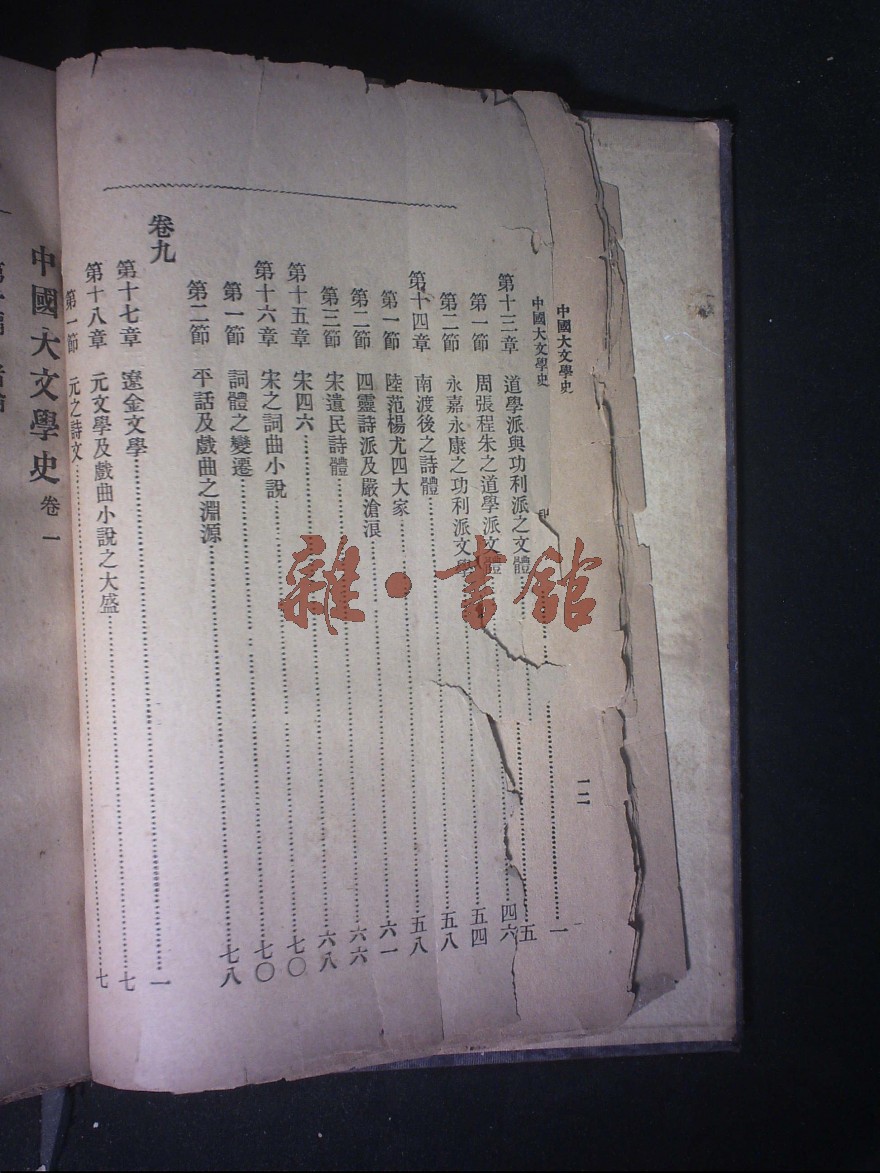 中國大文學史
一二
一
中國大文學史
第十三章 道學派與功利派之文體 五
第一節 周張程朱之道學派文體 四六
第二節 永嘉永康之功利派文學 五四
第十四章 南渡後之詩體 五八
第一節 陸范楊尤四大家 五八
第二節 四靈詩派及嚴滄浪 六一
第三節 宋遺民詩體 六六
第十五章 宋四六 六八
第十六章 宋之詞曲小說 七〇
第一節 詞體之變遷 七〇
第二節 平話及戲曲之淵源 七八
卷九
第十七章 遼金文學 一
第十八章 元文學及戲曲小說之大盛 七
第一節 元之詩文 七
中國大文學史 卷一
雜·書館